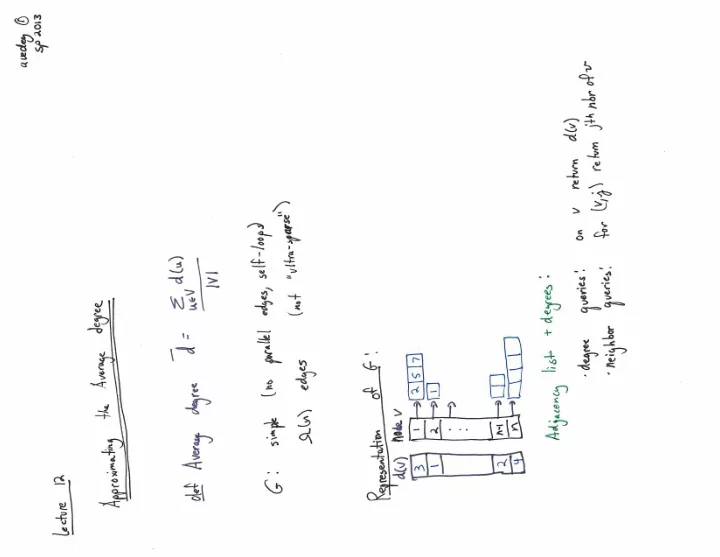 avedeg ①
sp 2013
Lecture 12
Approximating the Average degree
def Average degree d̄ = Σ u∈V d(u) / |V|
G: simple (no parallel edges, self-loops)
Ω(n) edges (not "ultra-sparse")
Representation of G:
d(v) Node v
3 1 → 2 5 7
1 2 → 1
⋮ →
2 n-1 →
4 n →
Adjacency list + degrees:
· degree queries: on v return d(v)
· neighbor queries: for (v,j) return jth nbr of v